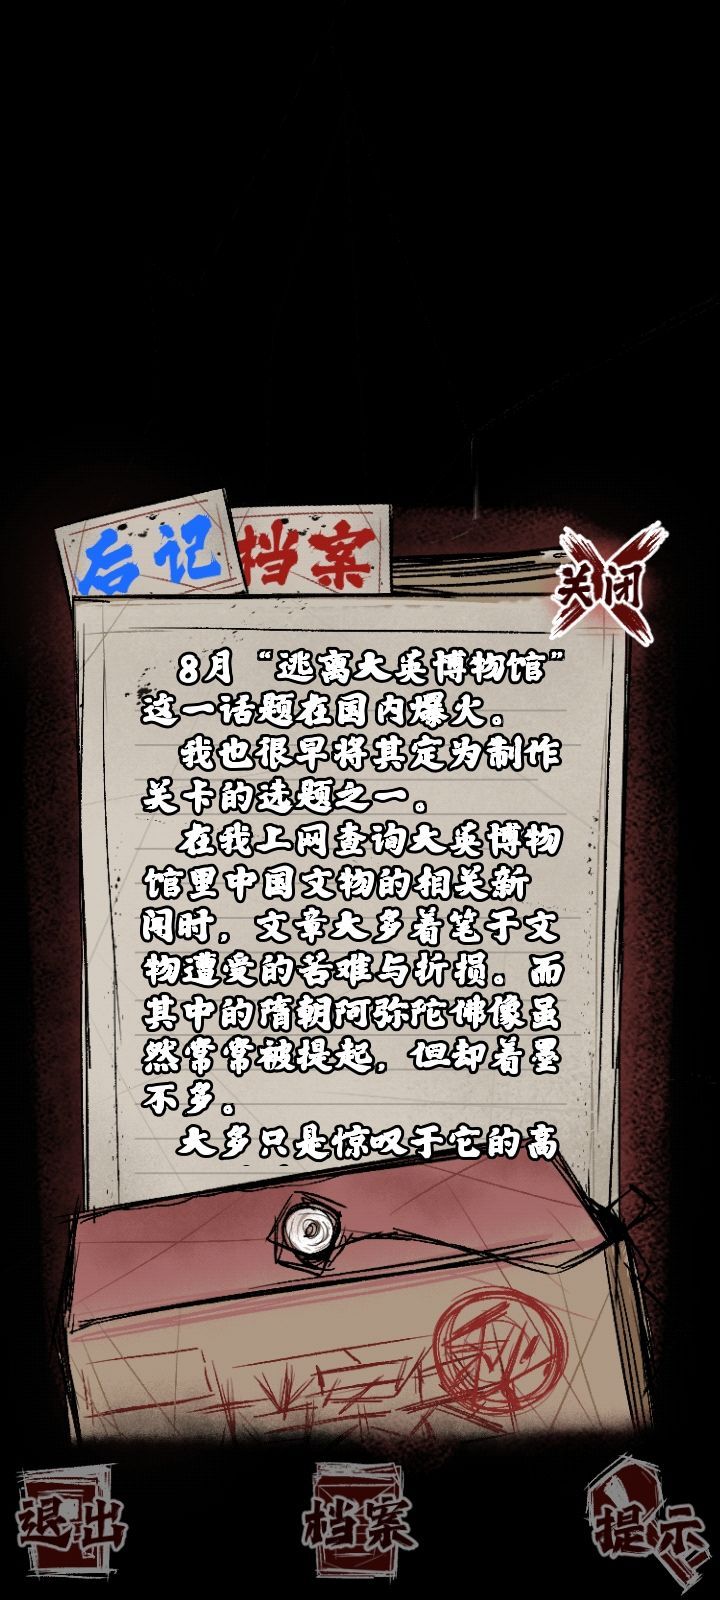 后记 档案
关闭
8月“逃离大英博物馆”
这一话题在国内爆火。
我也很早将其定为制作
关卡的选题之一。
在我上网查询大英博物
馆里中国文物的相关新
闻时，文章大多着笔于文
物遭受的苦难与折损。而
其中的隋朝阿弥陀佛像虽
然常常被提起，但却着墨
不多。
大多只是惊叹于它的高
退出 档案 提示